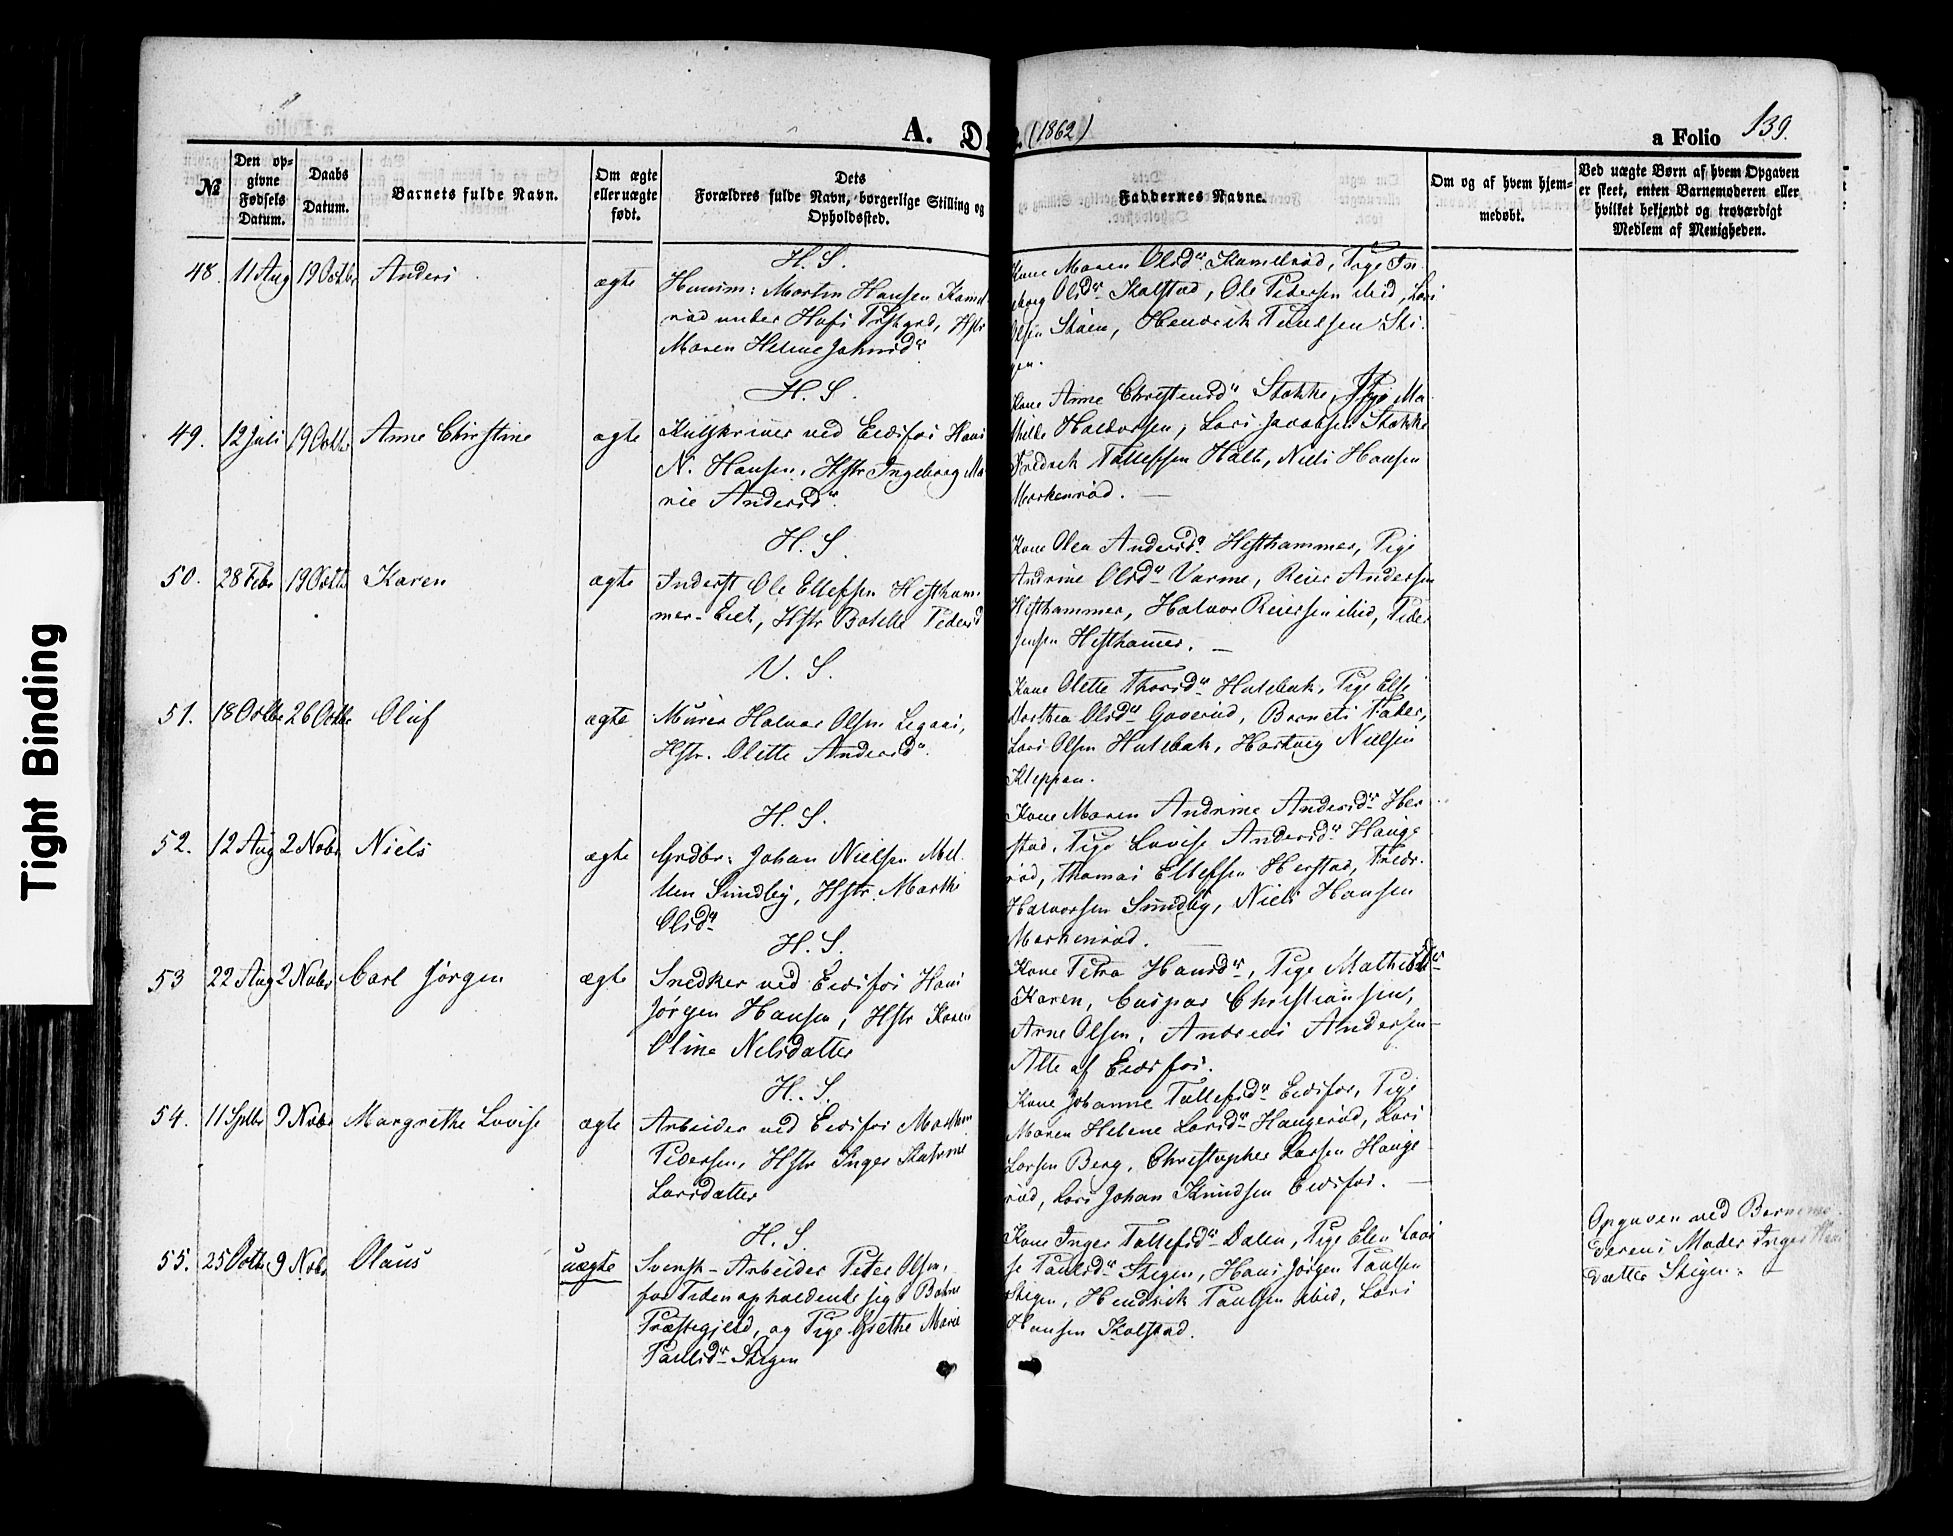 Tight Binding
A. D
(1862)
a Folio 139.
№
Den op-
givne
Fødsels
Datum.
Daabs
Datum.
Barnets fulde Navn.
Om ægte
eller uægte
født.
Dets
Forældres fulde Navn, borgerlige Stilling og
Opholdssted.
Faddernes Navne.
Om og af hvem hjem-
medøbt.
Ved uægte Børn af hvem Opgaven
er skeet, enten Barnemoderen eller
hvilket bekjendt og troværdigt
Medlem af Menigheden.
48. 11 Aug 19 Octbr Anders ægte
H. S.
Huusm: Martin Hansen Kamel
rød under Hofs Præstgrd, Hstr
Maren Helene Johnsdr
Kone Maren Olsdr Kamelrød, Pige In
geborg Olsdr Kolstad, Ole Pedersen ibid, Lars
Olsen Skien, Hendrik Paulsen Sti
gen.
49. 12 Juli 19 Octbr Anne Christine ægte
H. S.
Kulskriver ved Eidsfos Hans
N. Hansen, Hstr Ingeborg Ma
rie Andersdr
Kone Anne Christensdr Stokke, Pige Ma
thilde Halvorsen, Lars Jacobsen Stokke
Fredrik Tollefsen Holt, Niels Hansen
Morkenrød. —
50. 28 Febr 19 Octbr Karen ægte
H. S.
Inderst Ole Ellefsen Hestham
mer-Eiet, Hstr Bolette Pedersd
Kone Olea Andersdr Hesthammer, Pige
Andrine Olsdr Varme, Reier Andersen
Hesthammer, Halvor Reiersen ibid, Peder
Jensen Hesthammer. —
51. 18 Octbr 26 Octbr Oluf ægte
V. S.
Murer Halvor Olsen Legaas,
Hstr. Olette Andersdr
Kone Olette Thorsdr Hulebak, Pige Else
Dorthea Olsdr Goverud, Barnets Fader,
Lars Olsen Hulebak, Hartvig Nielsen
Kleppan.
52. 12 Aug 2 Novbr Niels ægte
H. S.
Grdbr: Johan Nielsen Mel
lem Sundby, Hstr. Marthe
Olsdr
Kone Maren Andrine Andersdr Her
stad, Pige Lovise Andersdr Hauge
rød, Thomas Ellefsen Herstad, Fredr.
Halvorsen Sundby, Niels Hansen
Morkenrød. —
53 22 Aug 2 Novbr Carl Jørgen ægte
H. S.
Snedker ved Eidsfos Hans
Jørgen Hansen, Hstr Karen
Oline Nelsdatter
Kone Petra Hansdr, Pige Mathilde
Karen, Caspar Christiansen,
Arne Olsen, Andreas Andersen —
Alle af Eidsfos.
54. 11 Sptbr 9 Novbr Margrethe Lovise ægte
H. S.
Arbeider ved Eidsfos Mathias
Pedersen, Hstr Inger Katrine
Larsdatter
Kone Johanne Tollefsdr Eidsfos, Pige
Maren Helene Larsdr Haugerød, Lars
Larsen Berg, Christopher Larsen Hauge
rød, Lars Johan Knudsen Eidsfos. —
55. 25 Octbr 9 Novbr Olaus uægte
H. S.
Svensk-Arbeider Peter Olsen,
for Tiden opholdende sig i Botne
Præstegjeld, og Pige Grethe Marie
Paulsdr Stigen
Kone Inger Tollefsdr Dalen, Pige Elen Lovi
se Paulsdr Stigen, Hans Jørgen Paulsen
Stigen, Hendrik Paulsen ibid, Lars
Hansen Kolstad.
Opgaven ved Barnemo
derens Moder Inger Hans
datter Stigen. —